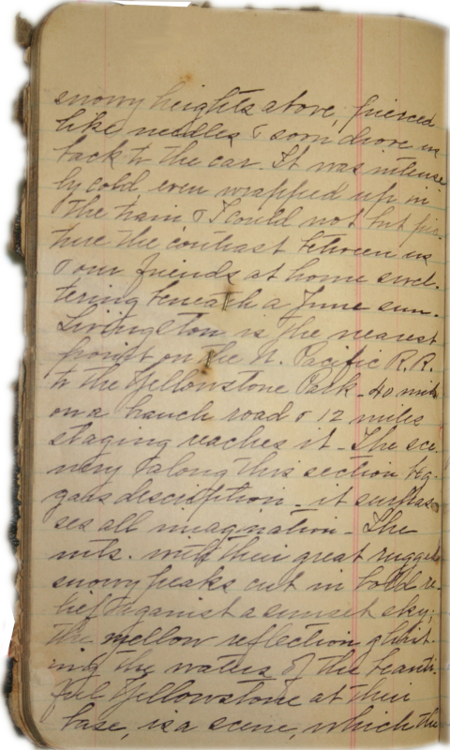 snowy heights above, pierced
like needles & soon drove us
back to the car. It was intense
ly cold, even wrapped up in
the train & I could not but pic-
ture the contrast between us
& our friends at home swel-
tering beneath a June sun.
Livingston is the nearest
point on the N. Pacific R.R.
to the Yellowstone Park - 40 miles
on a branch road & 12 miles
staging reaches it - The sce
nery along this section beg-
gars description - it surpas
ses all imagination - The
mts. with their great rugged
snowy peaks cut in bold re-
lief against a sunset sky;
the mellow reflection glint-
ing the waters of the beauti-
ful Yellowstone at their
base, is a scene, which the